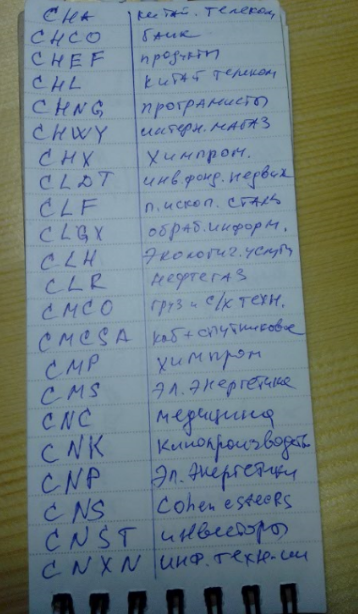 CHA китай. телеком
CHCO банк
CHEF продукты
CHL китай телеком
CHNG програмисты
CHWY интерн. магаз
CHX химпром.
CLDT инв. фонд. недвиж
CLF п. ископ. сталь
CLGX обраб. информ.
CLH экологич. услуги
CLR нефтегаз
CMCO груз и с/х техн.
CMCSA каб + спутниковое
CMP химпром
CMS эл. энергетика
CNC медицина
CNK кинопроизводств
CNP эл. энергетики
CNS Cohen esteers
CNST инвесторы
CNXN инф. техн-ии